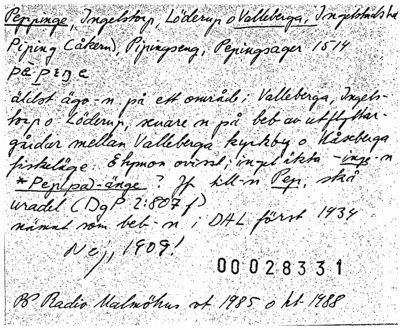 Peppinge, Ingelstorp, Löderup o Valleberga, Ingelstads hd
Piping (åkern), Pipingseng, Pepingsager 1514
pä̀piŋe
äldst ägo-n på ett område i Valleberga, Ingels-
torp o Löderup, senare n på beb av utflyttar-
gårdar mellan Valleberga kyrkby o Kåseberga
fiskeläge. Etymon ovisst; ingel äkta -inge-n
*Pep(pa)-änge? Jf till-n Pep, skå
uradel (DgP 2:807 f)
nämnt som beb-n i DAL först 1934
Nej, 1909!
00028331
PS Radio Malmöhus vt 1985 o ht 1988